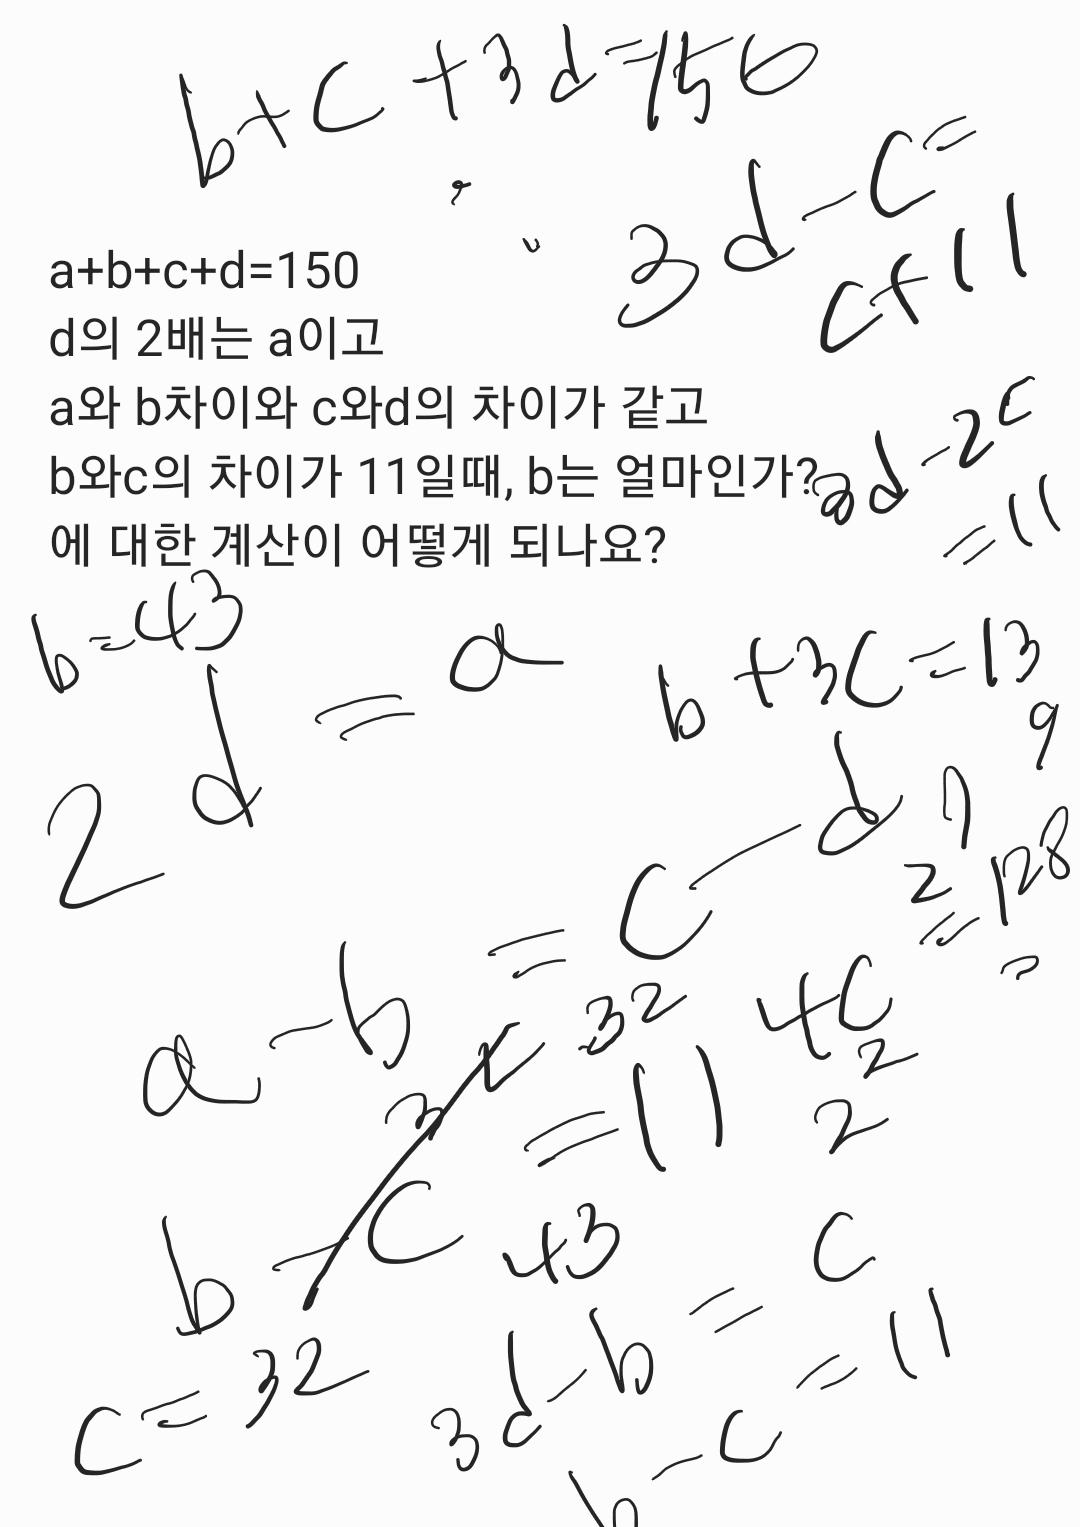 b+c+3d=150
3d-c=
c+11
a+b+c+d=150
d의 2배는 a이고
a와 b차이와 c와d의 차이가 같고
b와c의 차이가 11일때, b는 얼마인가?
에 대한 계산이 어떻게 되나요?
3d-2c
=11
b=43
2d=a
b+3c=139
a-b=c-d
=128
4c
32
b-c=11
43
c=32
3d-b=c
b-c=11